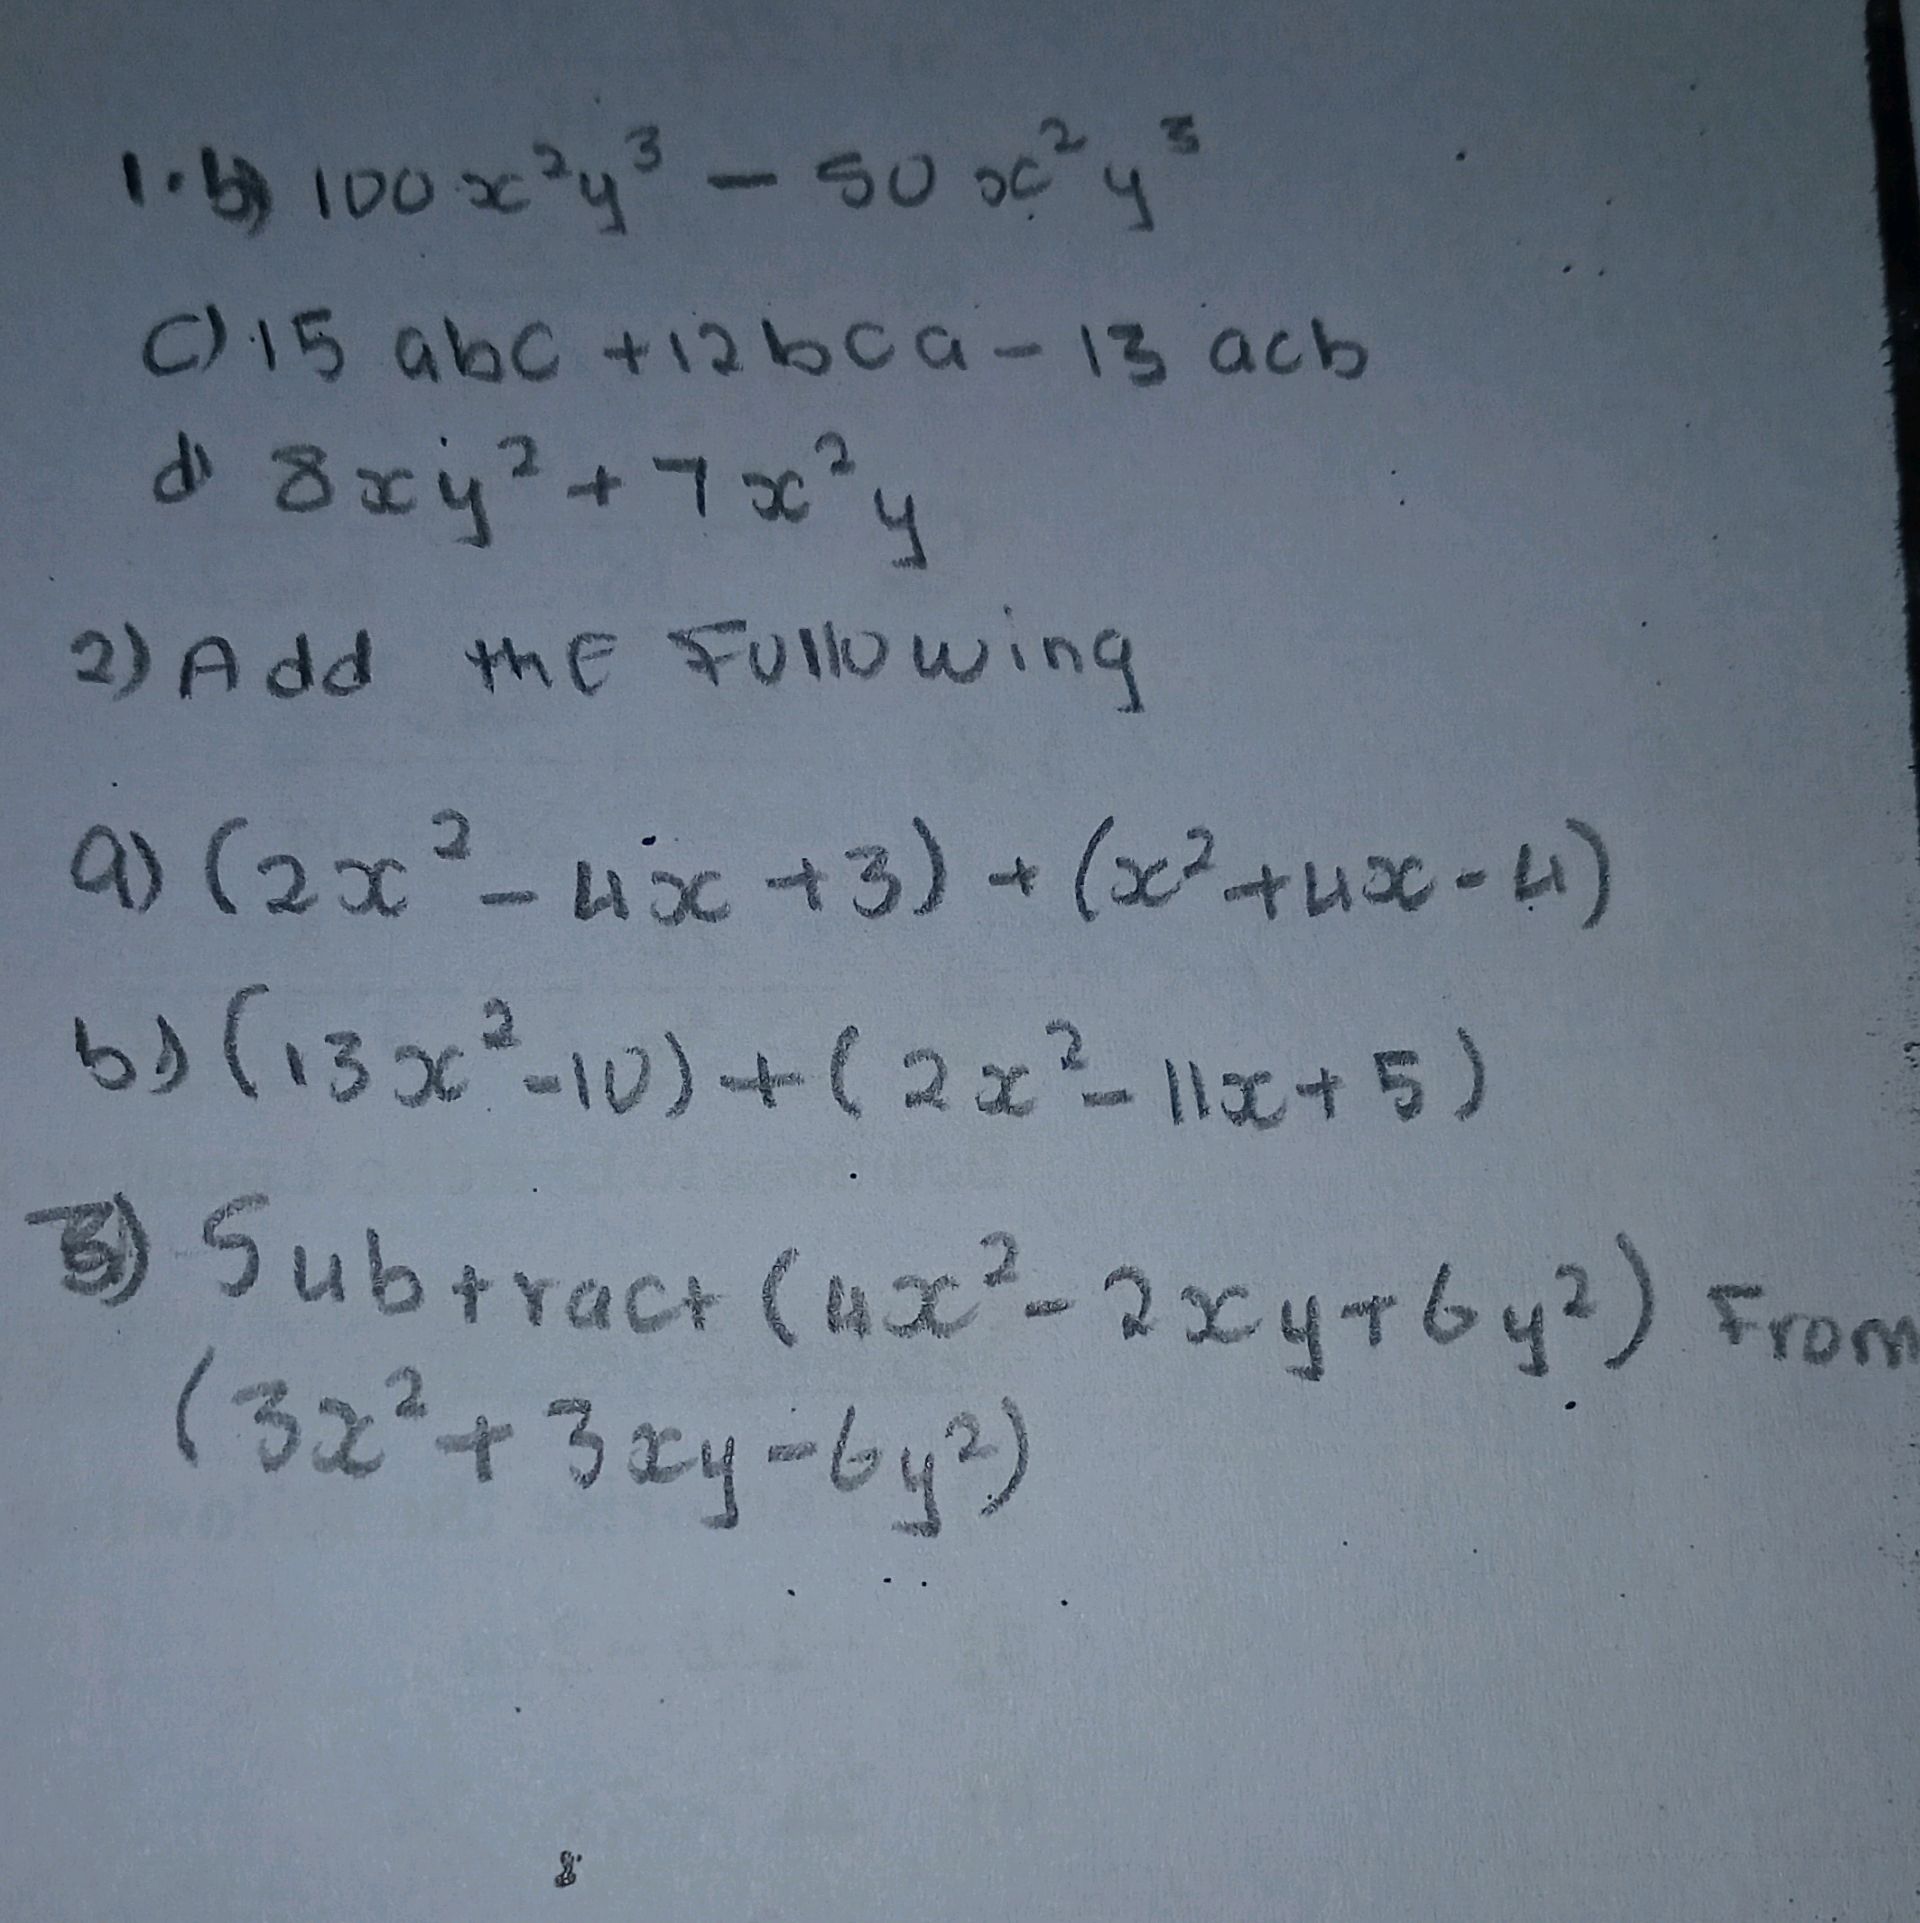 1.b) 100x²y³ - 50x²y³
c) 15 abc + 12bca - 13 acb
d) 8xy² + 7x²y
2) Add the Following
a) (2x² - 4x + 3) + (x² + 4x - 4)
b) (13x² - 10) + (2x² - 11x + 5)
3) Subtract (4x² - 2xy + 6y²) From
(3x² + 3xy - 6y²)